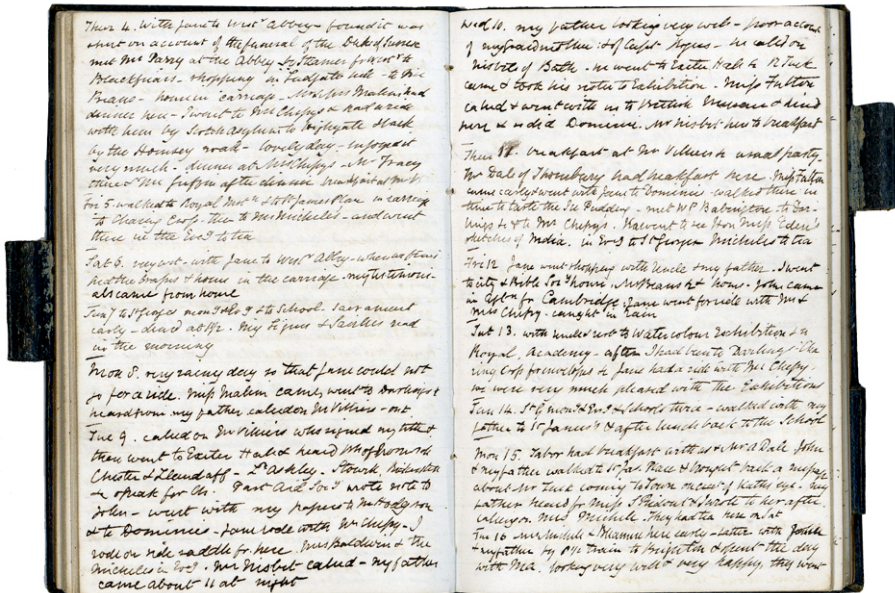 Thurs 4. With Jane to West Abbey - found it was
shut on account of the funeral of the Duke of Sussex
met Mr Parry at the Abbey & Steamer from to
Blackfriars - shopping in Ludgate hill - to
home in carriage - Malim had
dinner here - I went to Mr Chepys & had a ride
with them by Scotch Asylum to Highgate & back
by the Hornsey road - lovely day - enjoyed it
very much - dinner at Mr Chepys - Mr Tracy
& Mr after the dinner breakfast at Mr V.
Fri 5. walked to Royal & to St James Place in carriage
to Charing Cross - then to Mr Micheles - and went
there in the Evg to tea
Sat 6. with Jane to West Abbey - when
had the & home in the carriage -
also came from home
Sun 7 to St Georges morn & Evg & to School. Sacrament
early - dined at 1/2. My & read
in the morning
Mon 8. very rainy day so that Jane could not
go for a ride. Miss Malim came, went to Darlings &
heard from my father called on Mr Villiers - out
Tue 9. called on Mr Villiers who signed my &
then went to Exeter Hall & heard of Norwich
Chester & Llandaff - Ld Ashley - Stowell,
& speak for Ch. Past Aid Socy wrote note to
John - went with my papers to Mr Hodgson
& to Dominics - Jane rode with Mr Chepy - I
rode on side saddle for here. Mrs Baldwin & the
Micheles in Evg. Mr Nisbet called - my father
came about 11 at night
Wed 10. my father looking very well - poor account
of my & of Capt - he called on
Nisbet of Bath - he went to Exeter Hall & R Tuck
came & took his sister to Exhibition. Miss Fulton
called & went with us to British Museum & dined
here & so did Dominic. Mr Nisbet here to breakfast
Thurs 11. breakfast at Mr Villiers & usual party.
Mr Dale of Thornbury had breakfast here. Miss Fulton
came early & went with Jane to Dominic walked there in
time to taste the Ice Pudding - met W P Babington to Dar-
lings & to Mrs Chepys. We went to see Hon Miss Eden's
sketches of India. in Evg to St Georges Micheles to tea
Fri 12 Jane went shopping with Uncle & my father. I went
to city & Bible Socy house. & home. John came
in Aftn fr Cambridge. Jane went for ride with Mr &
Miss Chepy - caught in rain
Sat 13. with Uncle & rest to Watercolour Exhibition & to
Royal Academy - after I had been to Darlings & Cha
ring Cross for envelopes & Jane had a ride with Mr Chepy.
we were very much pleased with the Exhibitions
Sun 14. St G morn & Evg & Schools twice - walked with my
father to St James's & after lunch back to the School
Mon 15. Tabor had breakfast with us & Mr A Dale. John
& my father walked to St Jas. Place & brought back a message
about Mr Tuck coming to Town on acct of Kates eye. my
father heard from Miss & wrote to her after
calling on Mrs Michele. They had tea here on Sat
Tue 16 Mr Michele & here early - latter with John &
& my father by train to Brighton & spent the day
with Ma. looking very well & very happy, they went